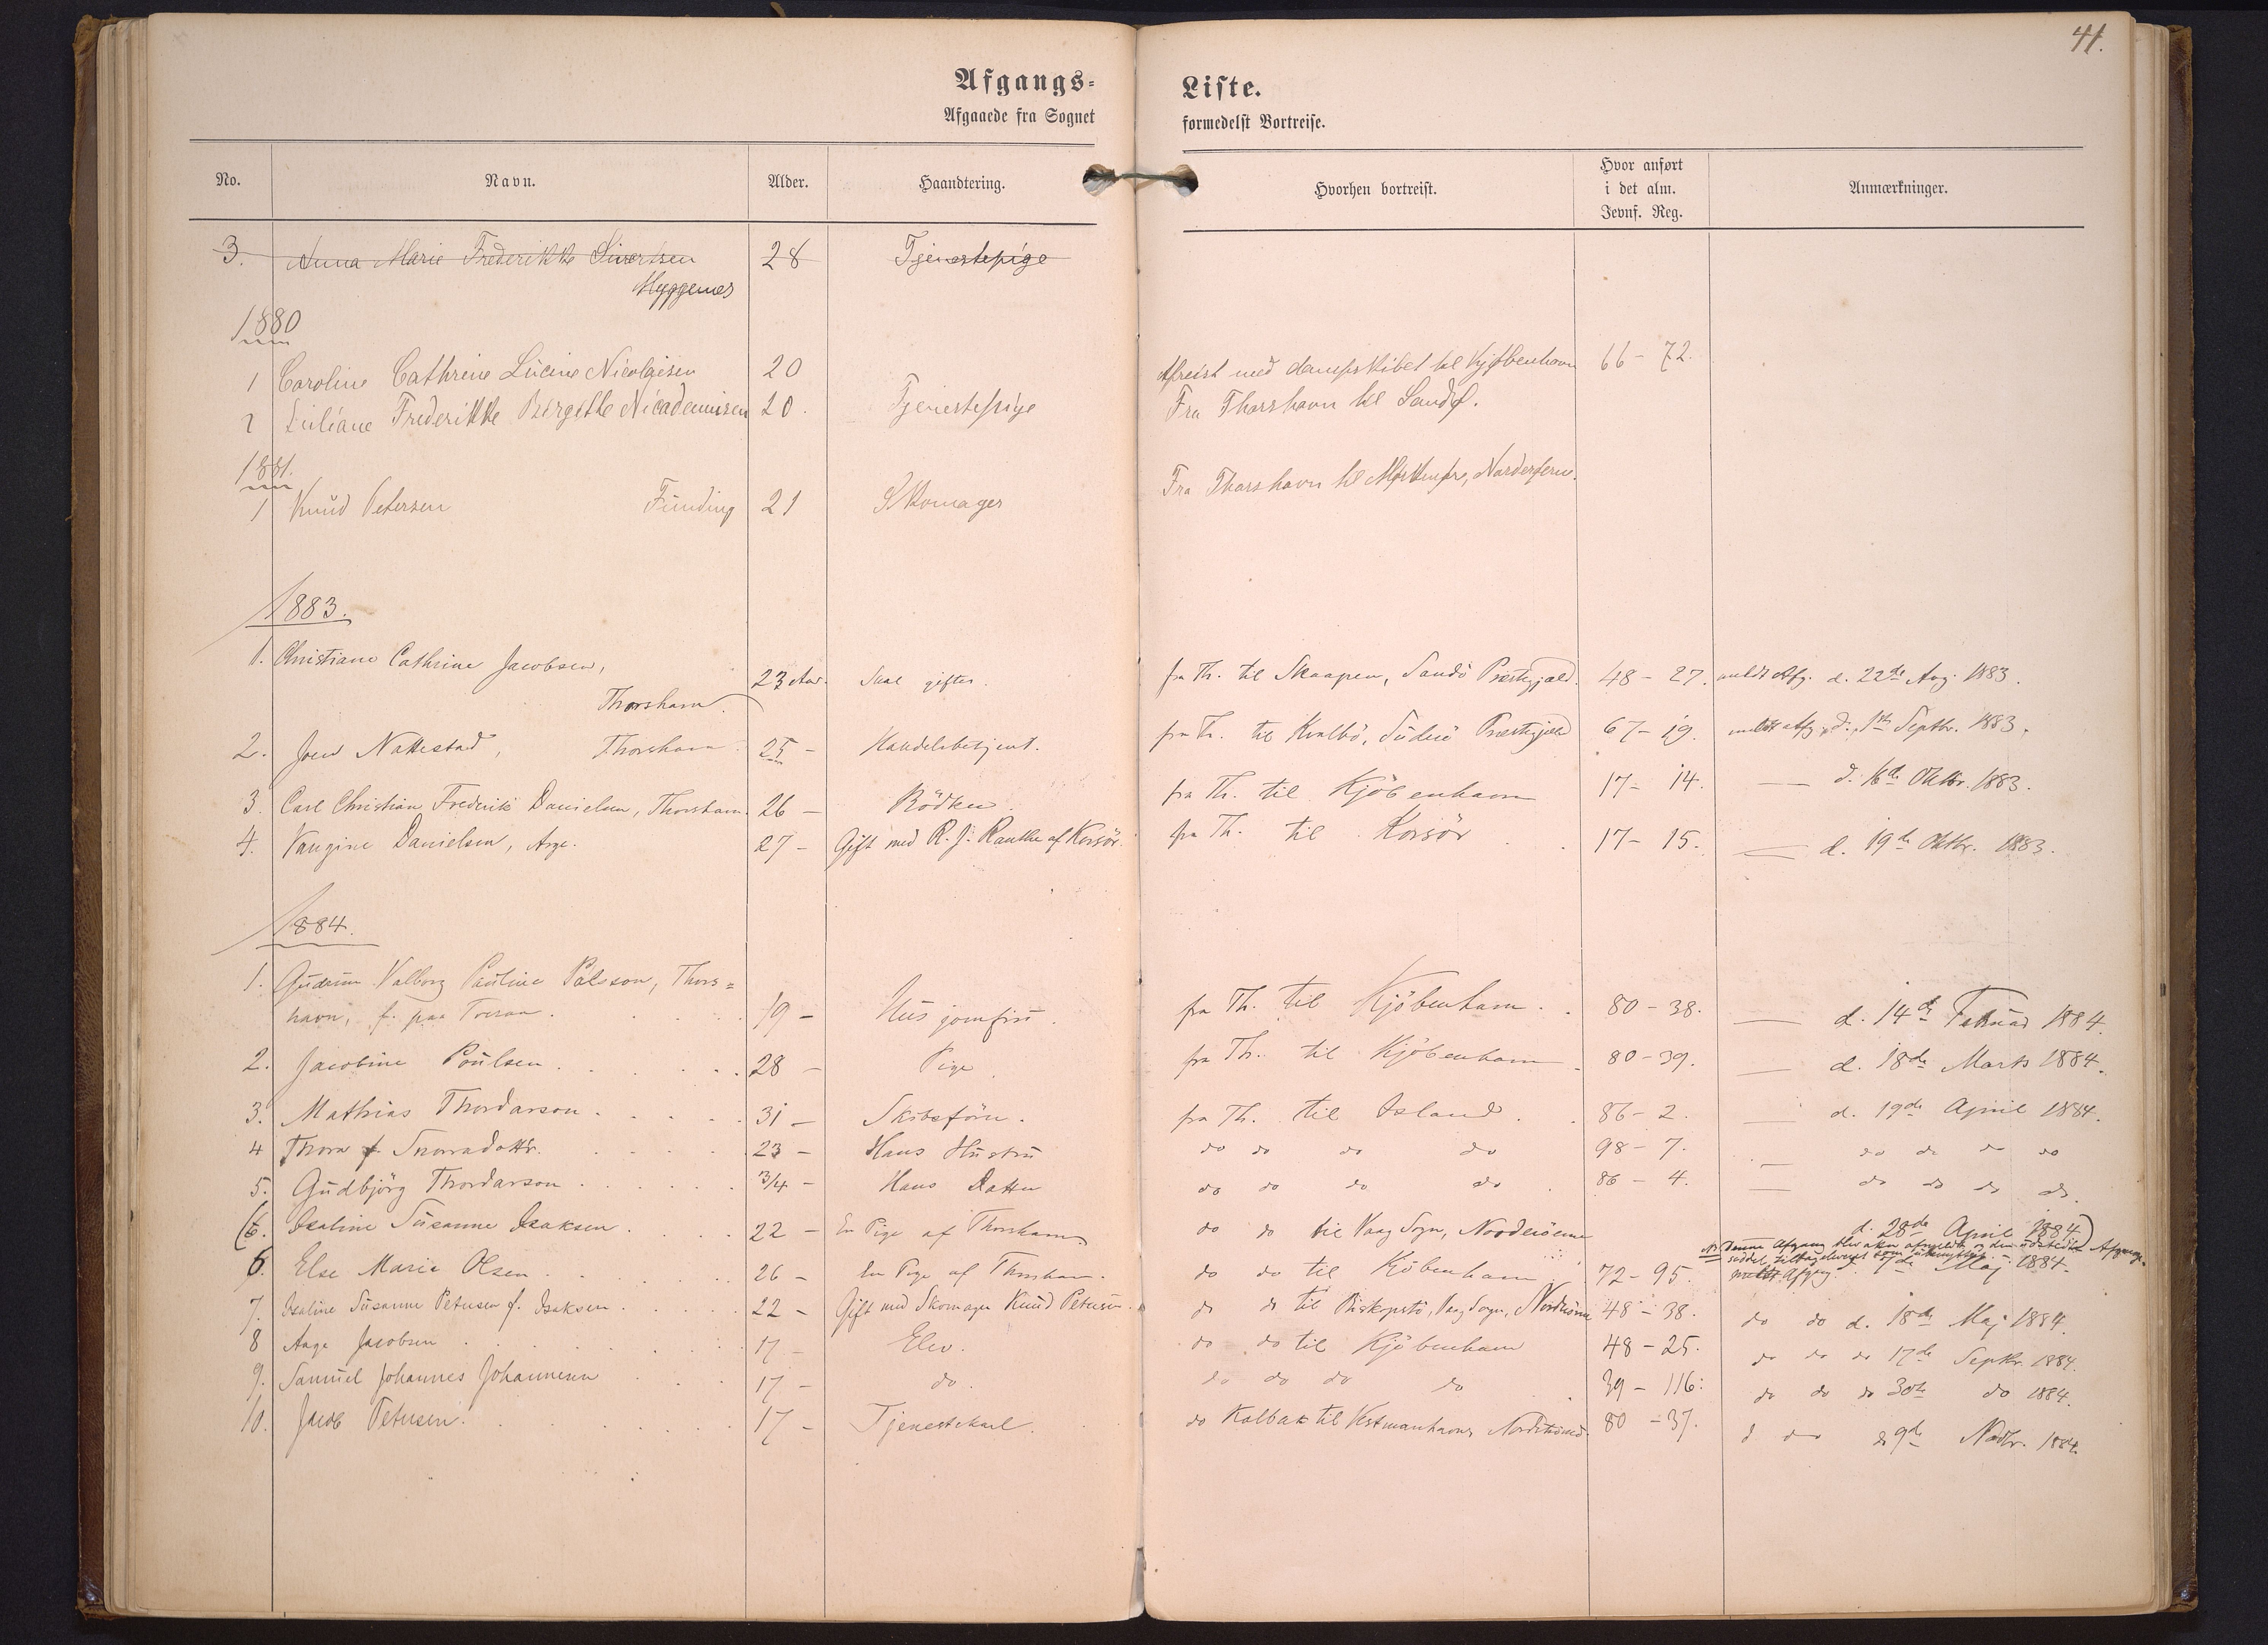 41.
Afgangs= Liste.
Afgaaede fra Sognet formedelst Bortreise.
No. Navn. Alder. Haandtering. Hvorhen bortreist. Hvor anført i det alm. Jevnf. Reg. Anmærkninger.
3. Anna Marie Frederikke Sivertsen 28 Tjenestepige
Myggenes
1880
1 Caroline Cathrine Lucine Nicolajsen 20 Afreist med dampskibet til Kjøbenhavn 66 - 72.
2 Juliane Frederikke Birgitte Nicademusen 20. Tjenestepige Fra Thorshavn til Sandø.
1881.
1 Knud Petersen Funding 21 Skomager Fra Thorshavn til Norderøerne.
1883.
1. Christiane Cathrine Jacobsen,
Thorshavn. 23 Aar. Skal giftes. fra Th. til Skaapen, Sandö Præstegjæld. 48 - 27. meldt Afg. d. 22de Aug. 1883.
2. Joen Nattestad, Thorshavn. 25 - Handelsbetjent. fra Th. til Kvalbö, Suderö Præstegjæld 67 - 19. meldt Afg. d. 1ste Septbr. 1883.
3. Carl Christian Frederik Danielsen, Thorshavn. 26 - Bödker. fra Th. til Kjöbenhavn 17 - 14. — d. 16de Oktbr. 1883.
4. Vangine Danielsen, Arge. 27 - Gift med R. J. Ranthe af Korsör. fra Th. til Korsör. 17 - 15. — d. 19de Oktbr. 1883.
1884.
1. Gudrun Valborg Pauline Pálsson, Thors=
havn, f. paa 19 - Husjomfru. fra Th. til Kjöbenhavn. 80 - 38. — d. 14de Februar 1884.
2. Jacobine Poulsen. 28 - Pige. fra Th. til Kjöbenhavn. 80 - 39. — d. 18de Marts 1884.
3. Mathias Thordarson. 31 - Skibsförer. fra Th. til Island. 86 - 2. — d. 19de April 1884.
4 Thora f. Snorradottir. 23 - Hans Hustru do do do do 98 - 7. — do do do do
5. Gudbjörg Thordarson. 3/4 - Hans Datter do do do do. 86 - 4. — do do do do.
(6. Isaline Susanne Isaksen. 22 - En Pige af Thorshavn do do til Vaag Sogn, Norderöerne d. 28de April 1884)
NB Denne Afgang blev atter afmeldt og den udstedte Afgangs-
seddel tilbageleveret som
6. Else Marie Olsen. 26 - En Pige af Thorshavn. do do til Köbenhavn. 72 - 95. meldt Afgang. d. 7de Maj 1884.
7. Isaline Susanne Petersen f. Isaksen. 22 - Gift med Skomager Knud Petersen. do do til Biskopstö, Vaag Sogn, Norderöerne 48 - 38. do do d. 18de Maj 1884.
8 Aage Jacobsen. 17 - Elev. do do til Kjöbenhavn 48 - 25. do do do 17de Septbr. 1884.
9. Samuel Johannes Johannesen 17 - do. do do do do. 39 - 116. do do do 30te do 1884.
10. Jacob Petersen. 17 - Tjenestekarl. do Kalbak til Vestmanhavn, Nordströmö. 80 - 37. d do do 9de Novbr. 1884.